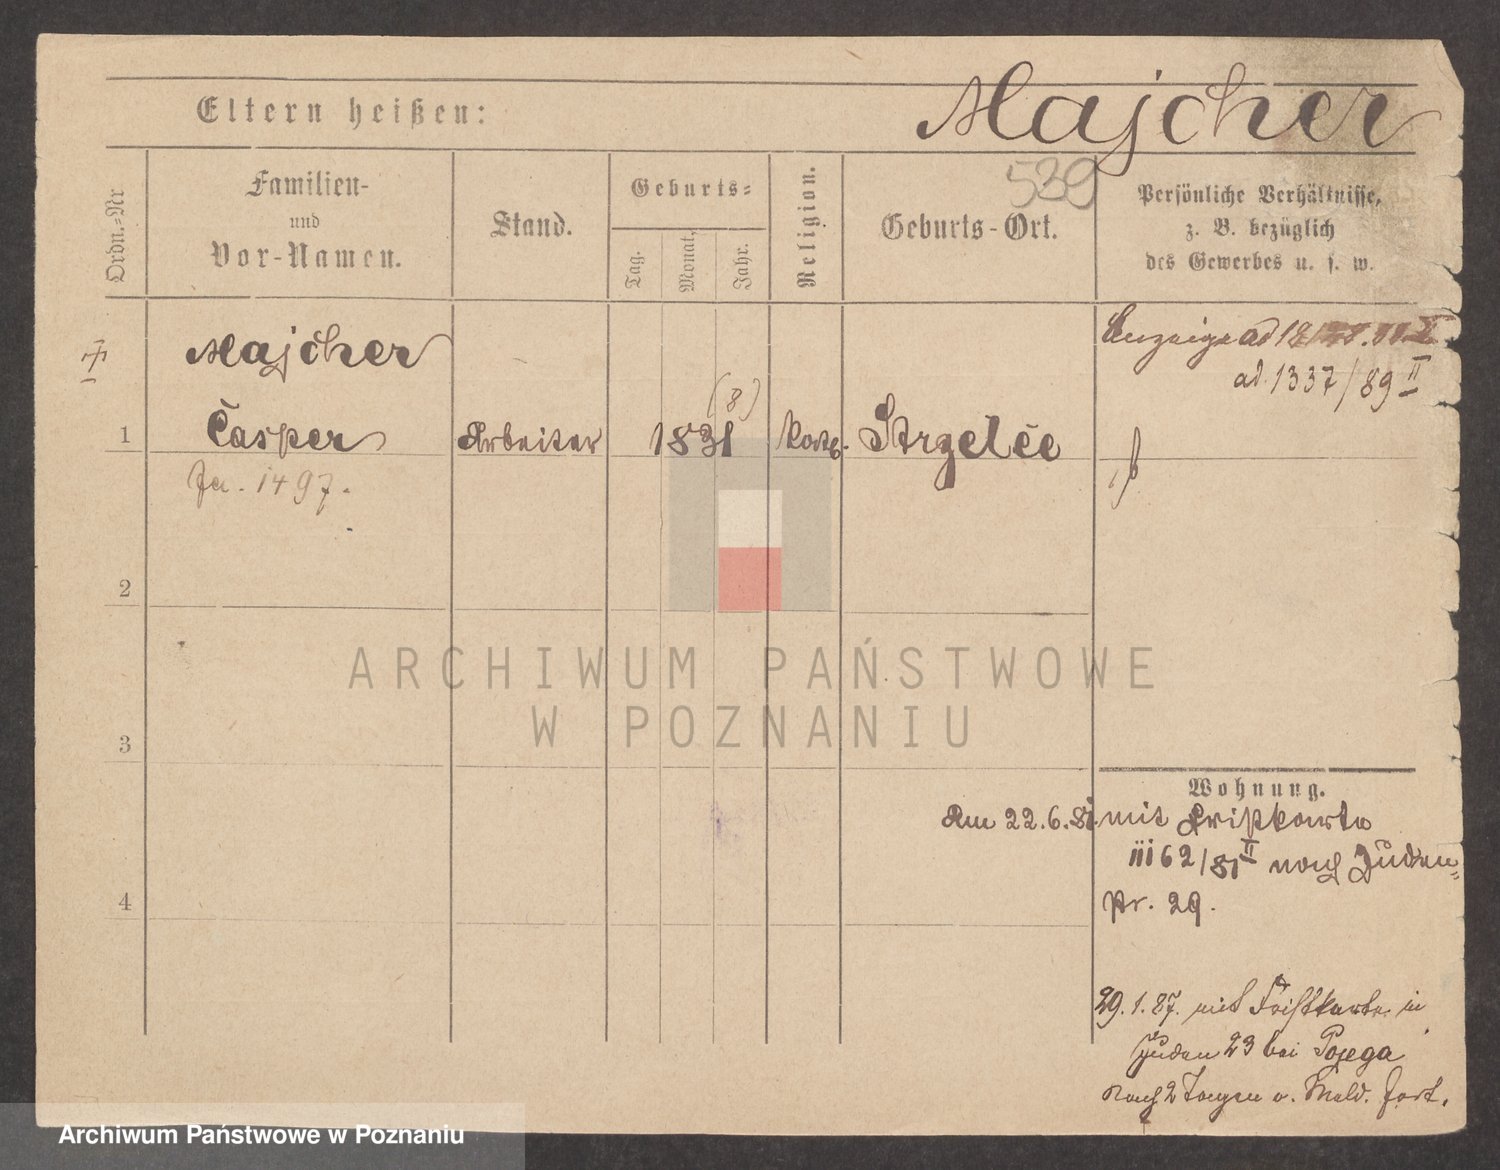 Eltern heißen:
Majcher
539
Ordn.=Nr
Familien-
und
Vor-Namen.
Stand.
Geburts=
Tag.
Monat.
Jahr.
Religion.
Geburts-Ort.
Persönliche Verhältnisse,
z. B. bezüglich
des Gewerbes u. s. w.
Majcher
Anzeige ad
ad. 1337/89 II
(8)
1
Časper
Arbeiter
1831
kath.
Strzelče
1497.
2
3
Wohnung.
Am 22.6.81. mit Fristkarte
iii 62/81 II nach Juden=
str. 29.
4
29.1.87. mit Fristkarte in
Juden 23 bei Pojega
nach 2 Tagen o. Meld. fort.
ARCHIWUM PAŃSTWOWE
W POZNANIU
Archiwum Państwowe w Poznaniu